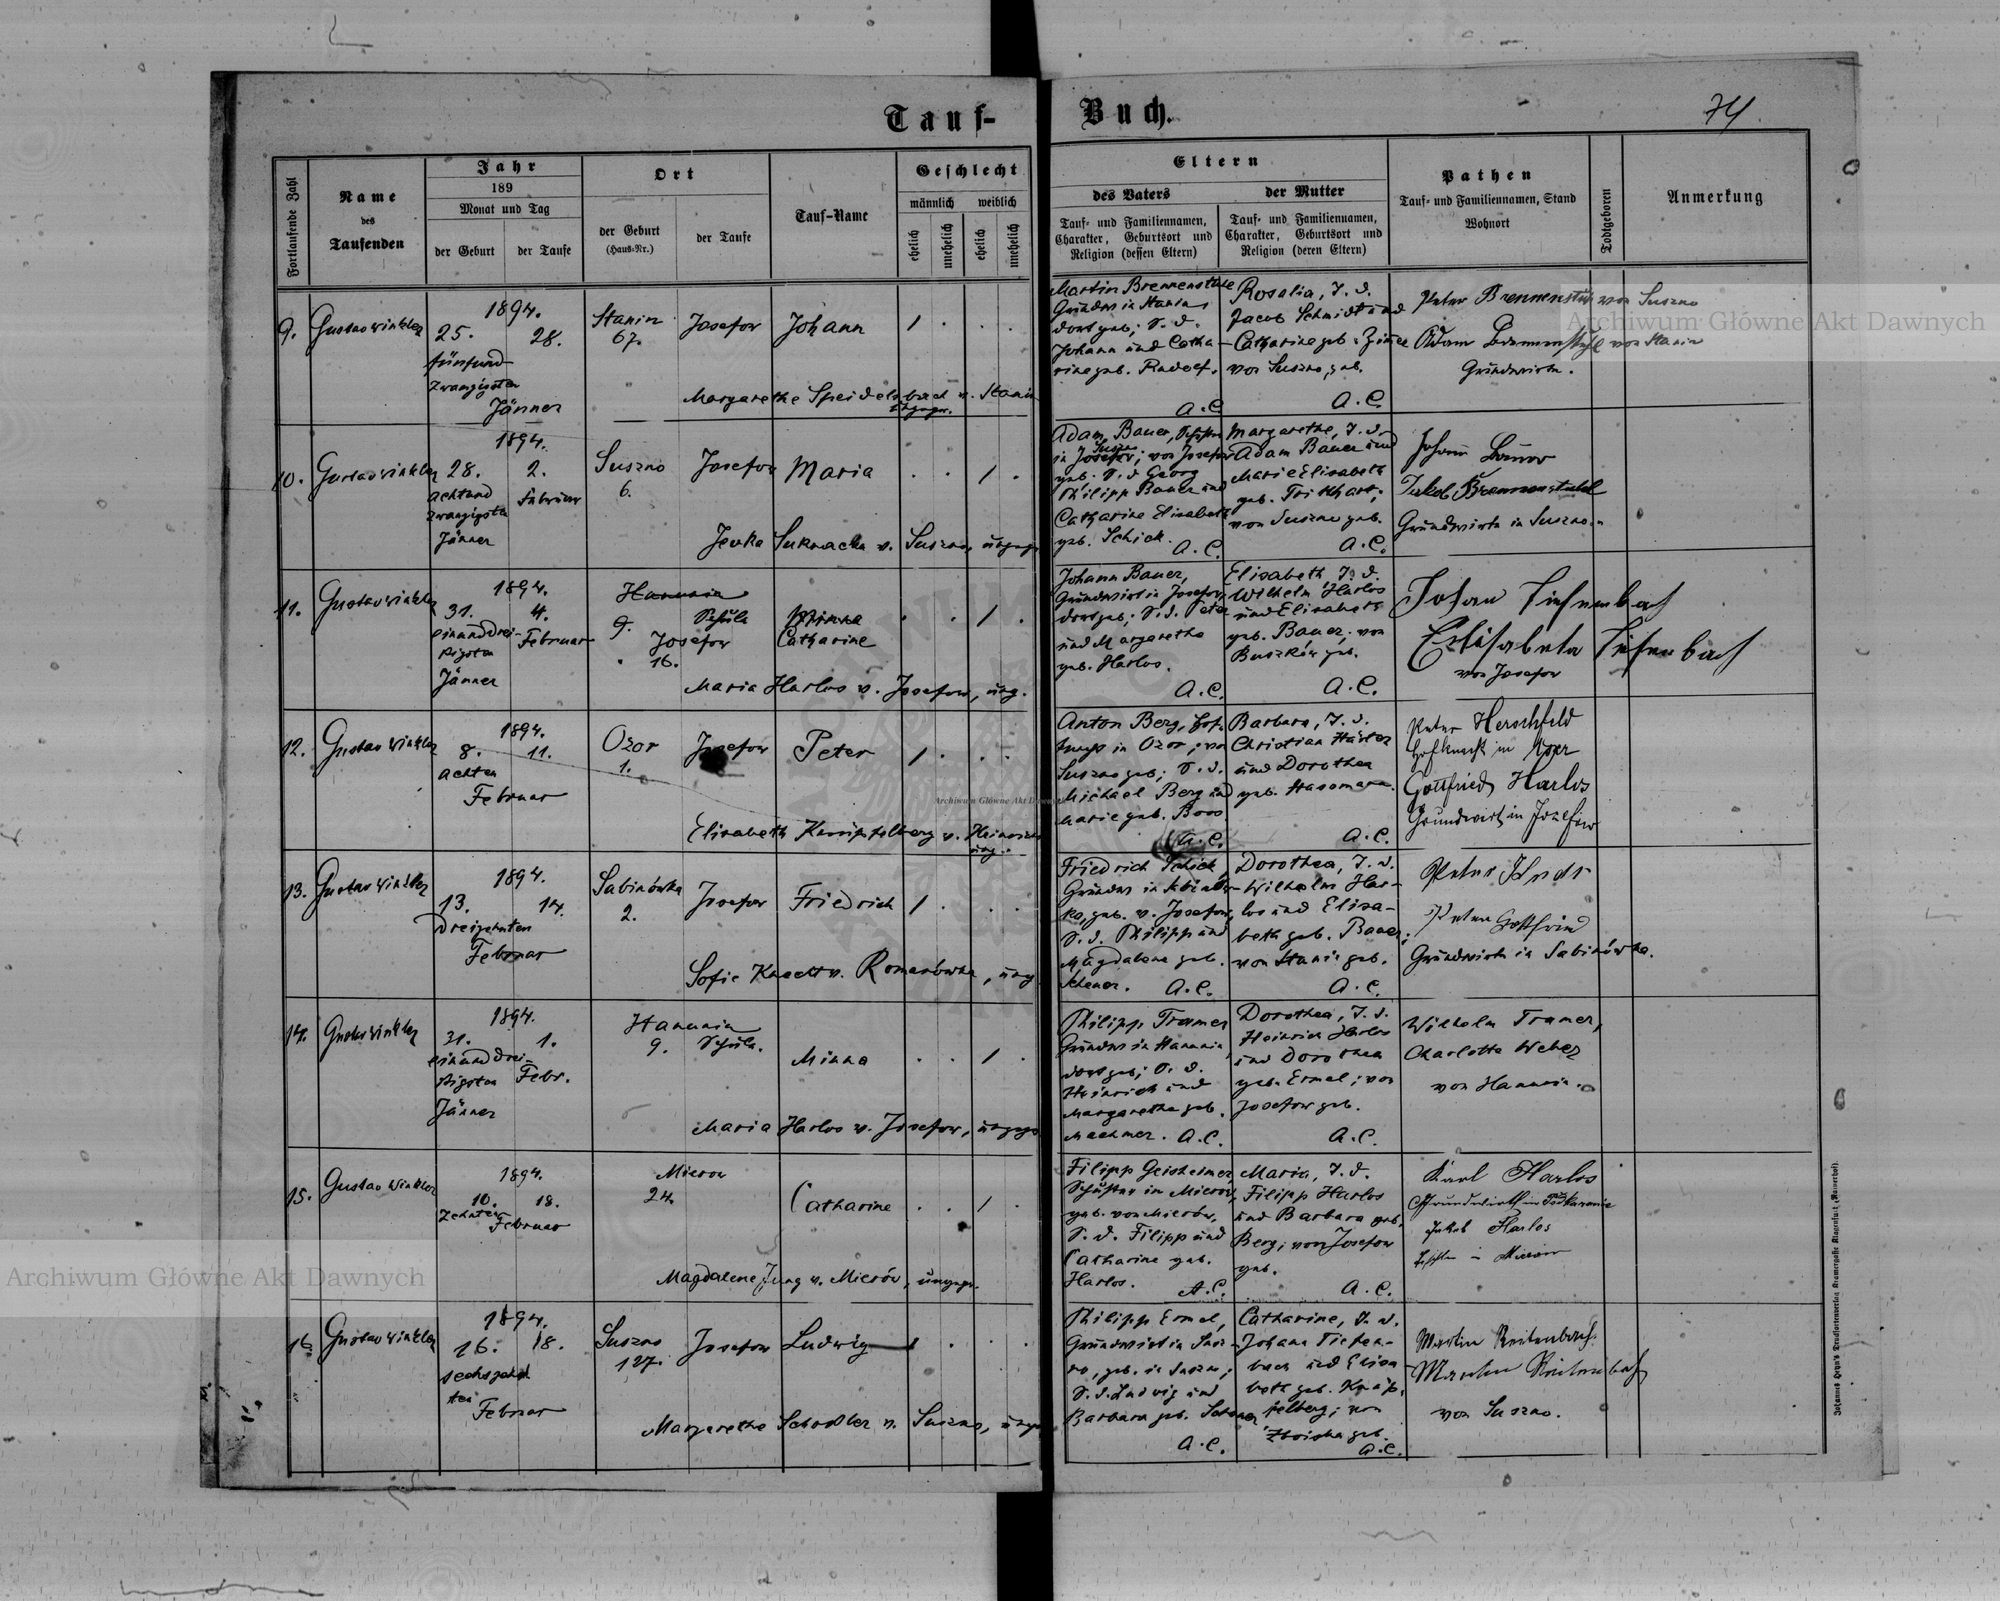 Tauf-
Buch.
74
Fortlaufende Zahl
Name
des
Taufenden
Jahr
189
Monat und Tag
der Geburt
der Taufe
Ort
der Geburt
(Haus-Nr.)
der Taufe
Tauf-Name
Geschlecht
männlich
weiblich
ehelich
unehelich
ehelich
unehelich
Eltern
des Vaters
Tauf- und Familiennamen,
Charakter, Geburtsort und
Religion (dessen Eltern)
der Mutter
Tauf- und Familiennamen,
Charakter, Geburtsort und
Religion (deren Eltern)
Pathen
Tauf- und Familiennamen, Stand
Wohnort
Todtgeboren
Anmerkung
9. Gustav Winkler
1894.
25. 28.
fünfund
zwanzigsten
Jänner
Stanin
67.
Josefow
Johann
Margarethe Speidelsbach v. Stanin
Martin Brennenstuhl
Grundw in Stanin,
dort geb; S. d.
Johann und Catha-
rine geb. Rudolf.
A.C.
Rosalia, T. d.
Jacob Schmidt und
Catharine geb.
von Suszno, geb.
A.C.
Peter Brennenstuhl von Suszno
Adam Brennenstuhl von Stanin
Grundwirte.
10. Gustav Winkler
1894.
28. 2.
achtund
zwanzigsten
Jänner
Februar
Suszno
6.
Josefow
Maria
Jevka Suknacka v. Suszno,
Adam Bauer,
in Josefow; von Josefow
geb. S. d. Georg
Philipp Bauer und
Catharine Elisabeth
geb. Schick.
A.C.
Margarethe, T. d.
Adam Bauer und
Marie Elisabeth
geb.
von Suszno geb.
A.C.
Johann Bauer
Jakob Brennenstuhl
Grundwirte in Suszno.
11. Gustav Winkler
1894.
31. 4.
einunddrei-
ßigsten
Jänner
Februar
Hanunin
9.
Schule
Josefow
16.
Minna
Catharine
Maria Harlos v. Josefow, ung.
Johann Bauer,
Grundwirt in Josefow,
dort geb; S. d. Peter
und Margaretha
geb. Harlos.
A.C.
Elisabeth, T. d.
Wilhelm Harlos
und Elisabeth
geb. Bauer; von
Buszków geb.
A.C.
Johan Tiefenbach
Elisabeta Tiefenbach
von Josefow
12. Gustav Winkler
1894.
8. 11.
achten
Februar
Ozor
1.
Josefow
Peter
Elisabeth v.
Anton Berg, Hof-
in Ozor; von
Suszno geb; S. d.
Michael Berg und
Marie geb. Boos
A.C.
Barbara, T. d.
Christian Härter
und Dorothea
geb.
A.C.
Peter Herschfeld
Hofknecht in Ozor
Gottfried Harlos
Grundwirt in Josefow
13. Gustav Winkler
1894.
13. 14.
dreizehnten
Februar
Sabinówka
2.
Josefow
Friedrich
Sofie Knecht v. Romanówka, ung.
Friedrich Schick,
Grundw in Sabinów-
ka, geb. v. Josefow,
S. d. Philipp und
Magdalena geb.
Scherer. A.C.
Dorothea, T. d.
Wilhelm Har-
los und Elisa-
beth geb. Bauer;
von Stanin geb.
A.C.
Peter
Peter Gottfried
Grundwirte in Sabinówka.
14. Gustav Winkler
1894.
31. 1.
einunddrei-
ßigsten
Jänner
Febr.
Hanunin
9. Schule.
Minna
Maria Harlos v. Josefow,
Philipp Tramer
Grundw in Hanunin,
dort geb; S. d.
Heinrich und
Margaretha geb.
Machmer. A.C.
Dorothea, T. d.
Heinrich Harlos
und Dorothea
geb. Ermel; von
Josefow geb.
A.C.
Wilhelm Tramer,
Charlotte Weber
von Hanunin.
15. Gustav Winkler
1894.
10. 18.
zehnten
Februar
Mierow
24.
Catharine
Magdalene Jung v. Mierów,
Filipp Geisheimer
Schuster in Mierow,
geb. von Mierów,
S. d. Filipp und
Catharine geb.
Harlos. A.C.
Maria, T. d.
Filipp Harlos
und Barbara geb.
Berg; von Josefow
geb.
A.C.
Karl Harlos
Grundwirth in
Jakob Harlos
in Mierow
16. Gustav Winkler
1894.
16. 18.
sechszehn
ten
Februar
Suszno
127.
Josefow
Ludwig
Margarethe Schodler v. Suszno,
Philipp Ermel,
Grundwirt in Susz-
no, geb. in Suszno;
S. d. Ludwig und
Barbara geb.
A.C.
Catharine, T. d.
Johann Tiefen-
bach und Elisa
beth geb.
von
geb.
A.C.
Martin Reitenbach.
Martin Reitenbach
von Suszno.
Archiwum Główne Akt Dawnych
Archiwum Główne Akt Dawnych
Archiwum Główne Akt Dawnych